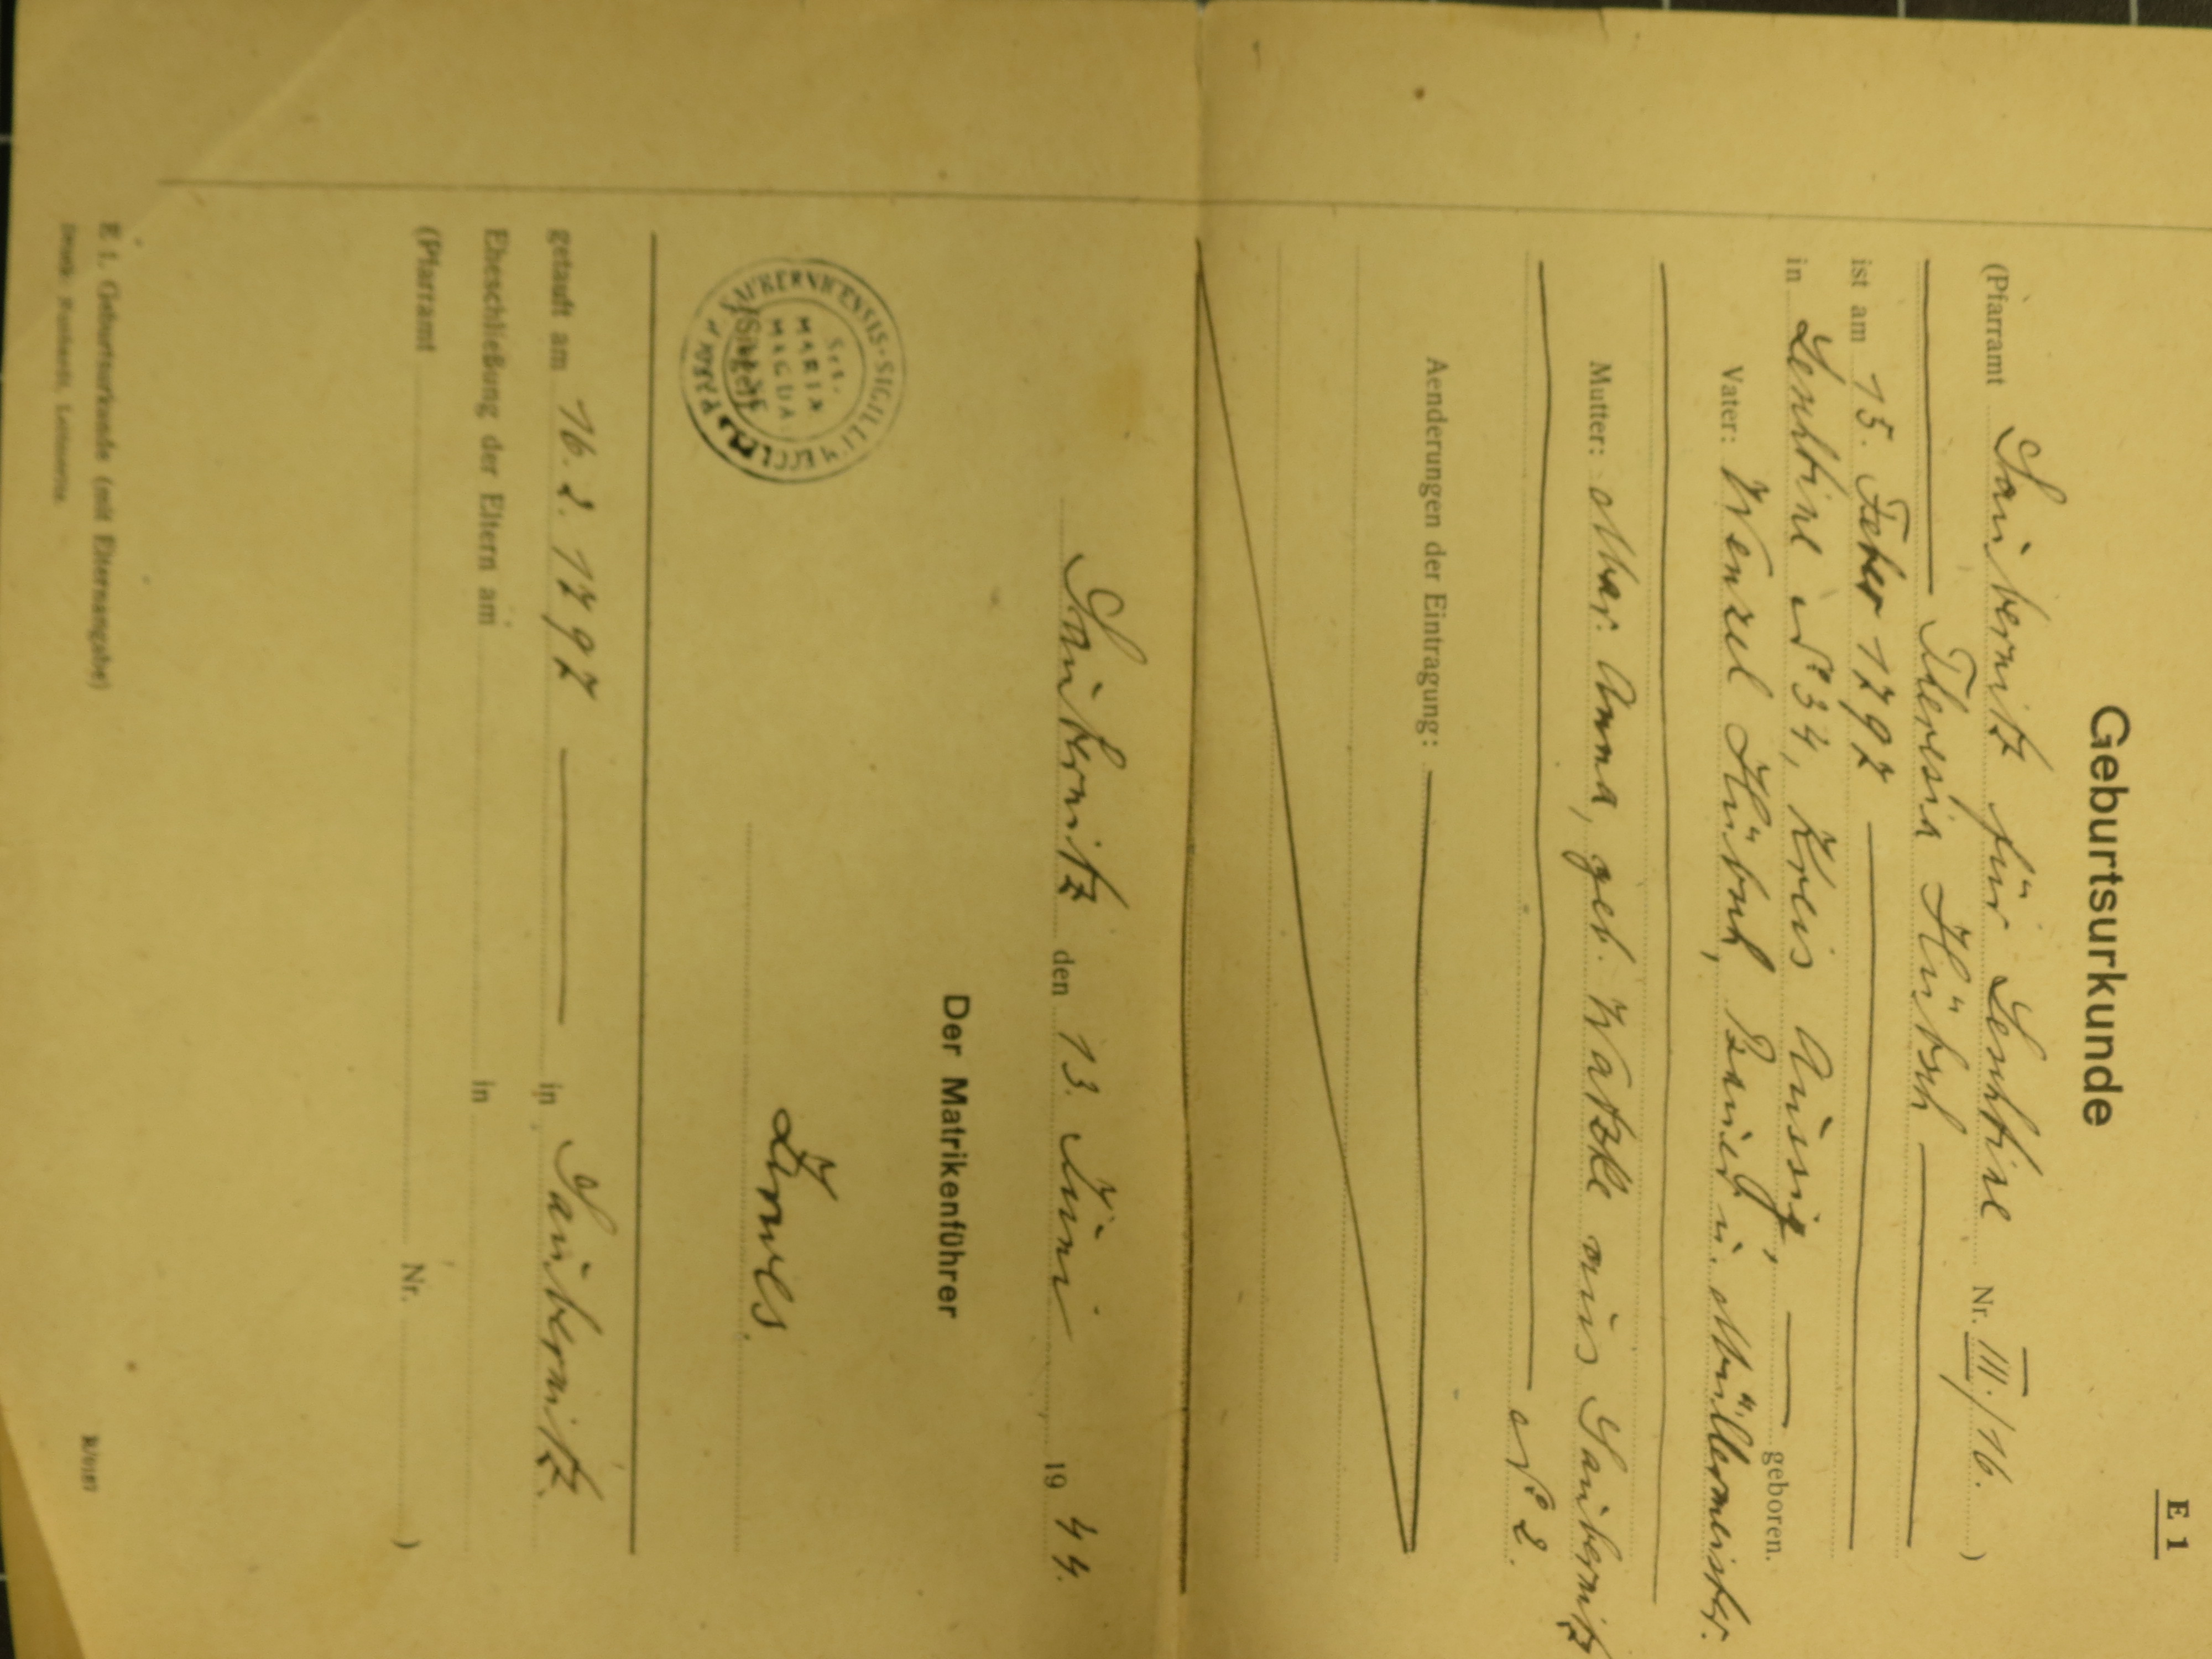 E 1
Geburtsurkunde
(Pfarramt Saubernitz für Leschtine Nr. III./16. )
Theresia Hübsch
ist am 15. Feber 1797
in Leschtine No 34, Kreis Aussig, geboren.
Vater: Wenzel Hübsch, Bauer u. Müllermeister.
Mutter: Mar. Anna, geb. Watzke aus Saubernitz
No 2.
Aenderungen der Eintragung:
Saubernitz den 13. Juni 1944.
Der Matrikenführer
SIGILLUM
MARIA
MAGDA
(Siegel)
getauft am 16.2.1797 in Saubernitz.
Eheschließung der Eltern am in
(Pfarramt Nr. )
E 1. Geburtsurkunde (mit Elternangabe)
R/0187